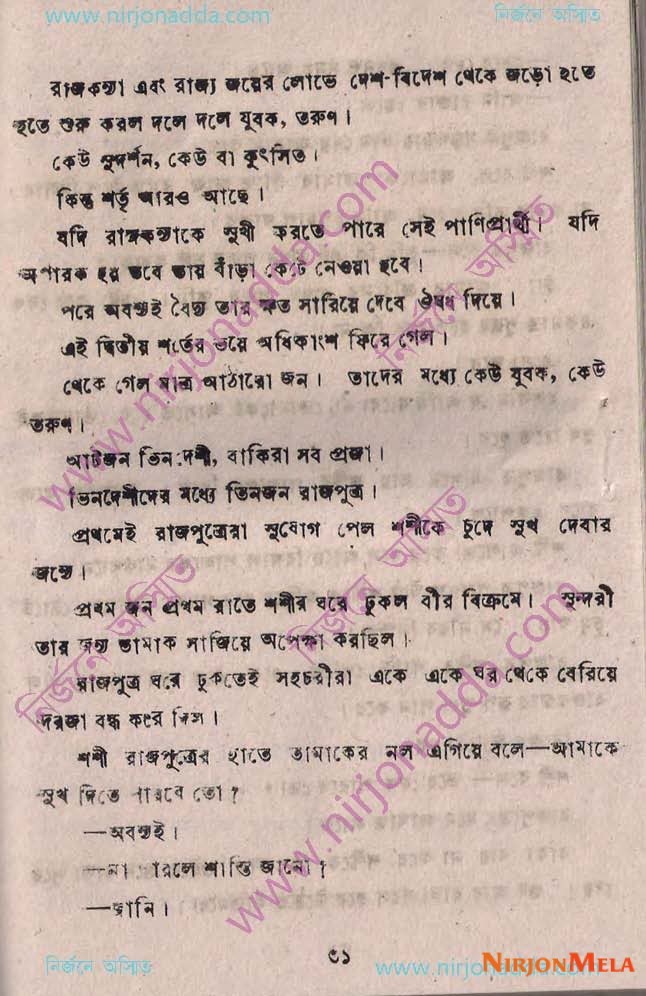 www.nirjonadda.com নির্জনে অস্মিত
রাজকন্যা এবং রাজ্য জয়ের লোভে দেশ-বিদেশ থেকে জড়ো হতে
হতে শুরু করল দলে দলে যুবক, তরুণ।
কেউ সুদর্শন, কেউ বা কুৎসিত।
কিন্তু শর্ত আরও আছে।
যদি রাজকন্যাকে সুখী করতে পারে সেই পাণিপ্রার্থী। যদি
অপারক হয় তবে তার বাঁড়া কেটে নেওয়া হবে।
পরে অবশ্যই বৈদ্য তার ক্ষত সারিয়ে দেবে ঔষধ দিয়ে।
এই দ্বিতীয় শর্তের ভয়ে অধিকাংশ ফিরে গেল।
থেকে গেল মাত্র আঠারো জন। তাদের মধ্যে কেউ যুবক, কেউ
তরুণ।
আটজন ভিনদেশী, বাকিরা সব প্রজা।
ভিনদেশীদের মধ্যে তিনজন রাজপুত্র।
প্রথমেই রাজপুত্রেরা সুযোগ পেল শশীকে চুদে সুখ দেবার
জন্যে।
প্রথম জন প্রথম রাতে শশীর ঘরে ঢুকল বীর বিক্রমে। সুন্দরী
তার জন্য তামাক সাজিয়ে অপেক্ষা করছিল।
রাজপুত্র ঘরে ঢুকতেই সহচরীরা একে একে ঘর থেকে বেরিয়ে
দরজা বন্ধ করে দিল।
শশী রাজপুত্রের হাতে তামাকের নল এগিয়ে বলে—আমাকে
সুখ দিতে পারবে তো?
—অবশ্যই।
—না পারলে শাস্তি জানো?
—জানি।
৩১
নির্জনে অস্মিত www.nirjonadda.com
NIRJONMELA
www.nirjonadda.com
নির্জনে অস্মিত
নির্জনে অস্মিত
নির্জনে অস্মিত
www.nirjonadda.com